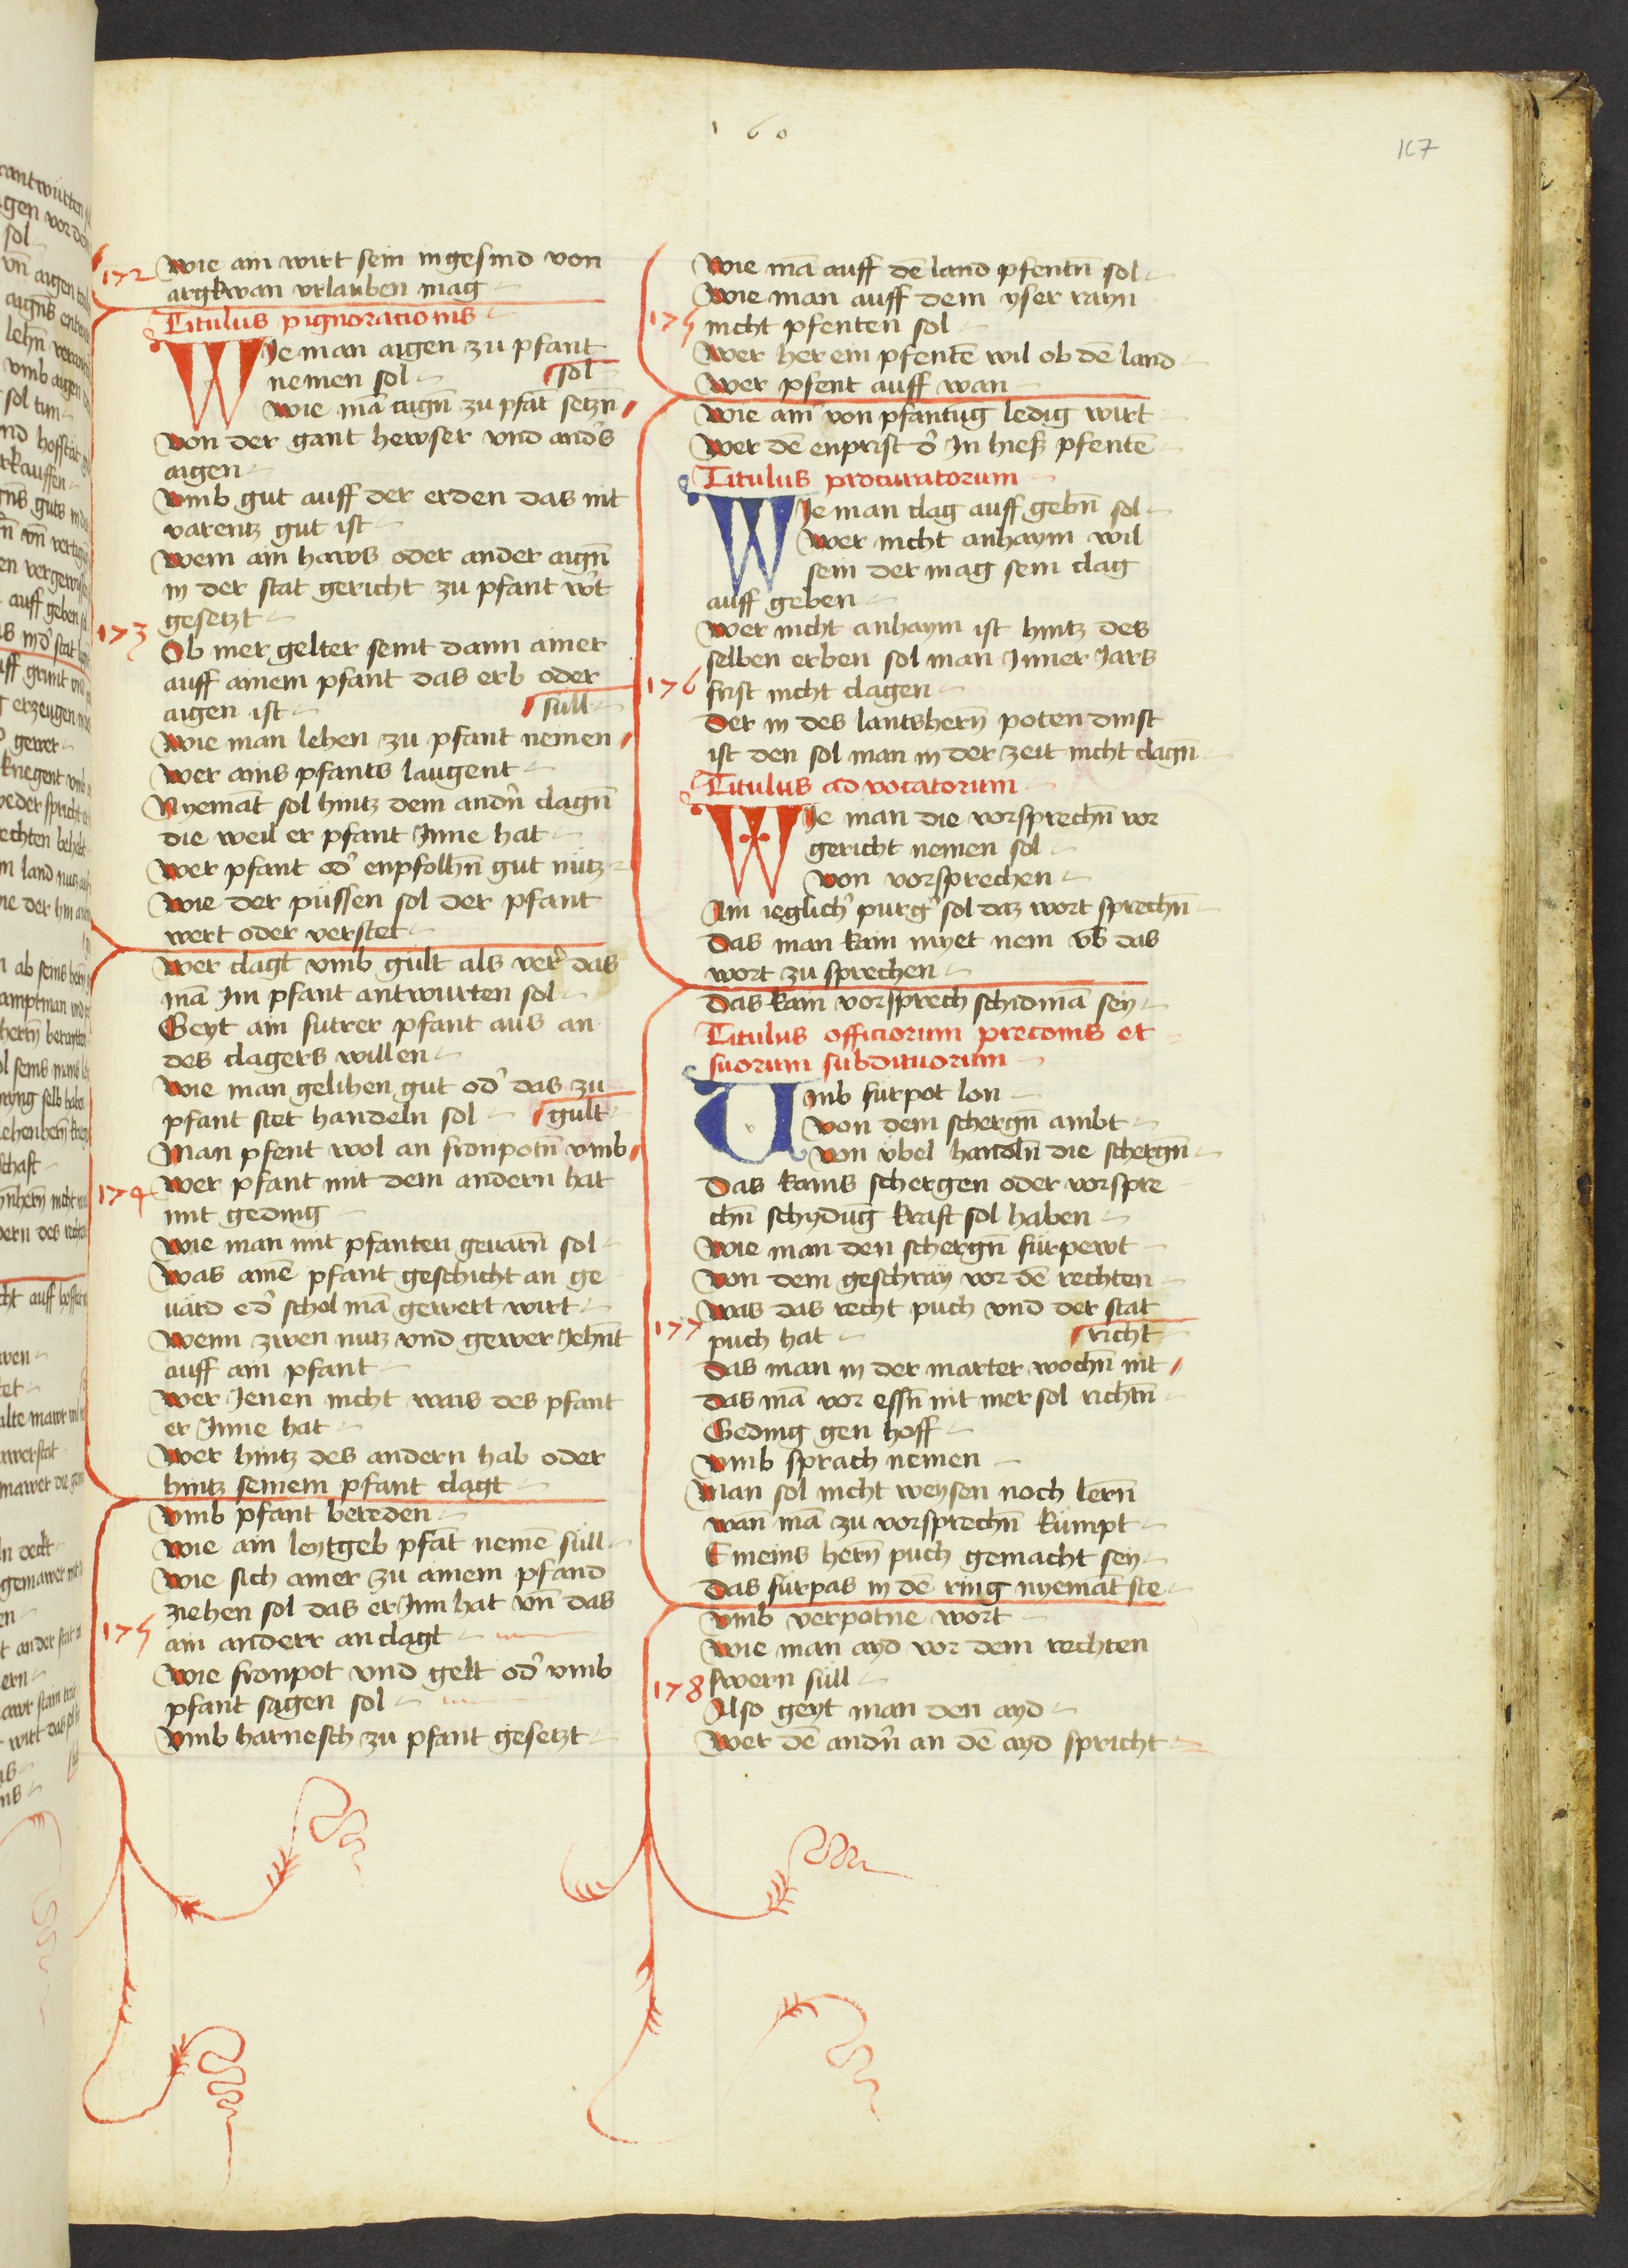 160
167
172
wie ain wirt sein ingesind von
argkwan vrlauben mag
Titulus pignoracionis
WIe man aigen zu pfant
nemen sol
sol
wie mā aigñ zu pfāt setzñ
von der gant hewser vnd andˀs
aigen
vmb gut auff der erden das nit
varentz gut ist
wem ain haws oder ander aigñ
in der stat gericht zu pfant wˀt
173
gesetzt
Ob mer gelter seint dann ainer
auff ainem pfant das erb oder
aigen ist
süll
wie man lehen zu pfant nemen
wer ains pfants laugent
Nyemāt sol hintz dem andˀn clagñ
die weil er pfant Inne hat
wer pfant odˀ enpfolhñ gut nützt
wie der püssen sol der pfant
wert oder verstet
wer clagt vmb gült als verˀ das
mā Im pfant antwurten sol
Geyt ain sutrer pfant aus an
des clagers willen
wie man gelihen gut odˀ das zu
pfant stet handeln sol
gült
Man pfent wol an fronpotñ vmb
174
wer pfant mit dem andern hat
mit geding
wie man mit pfanten geuarñ sol
was aimē pfant geschicht an ge
uärd edˀ schol mā gewert wirt
wenn zwen nutz vnd gewer Jehñt
auff ain pfant
wer Jenen nicht wais des pfant
er Inne hat
wer hintz des andern hab oder
hintz seinem pfant clagt
vmb pfant bereden
wie ain leytgeb pfāt nemē süll
wie sich ainer zu ainem pfand
ziehen sol das er Inn hat vñ das
175
ain anderr anclagt
wie fronpot vnd gelt odˀ vmb
pfant sagen sol
vmb harnesch zu pfant gesetzt
wie mā auff dē land pfentñ sol
wie man auff dem yser rayn
175
nicht pfenten sol
wer her ein pfentē wil ob dē land
wer pfent auff wan
wie ainˀ von pfantūg ledig wirt
wer dē enprist dˀ In hieß pfentē
Titulus procuratorum
WIe man clag auff gebñ sol
wer nicht anhaym wil
sein der mag sein clag
auff geben
wer nicht anhaym ist hintz des
selben erben sol man Inner Jars
176
frist nicht clagen
Der in des lantshern̄ poten dinst
ist den sol man in der zeit nicht clagñ
Titulus advocatorum
WIe man die vorsprechñ vor
gericht nemen sol
von vorsprechen
Ain ieglichˀ purgˀ sol daz wort sprechñ
Das man kain myet nem vb̄ das
wort zu sprechen
Das kain vorsprech schidmā sey
Titulus officiorum preconis et
suorum subdituorum
Vmb fürpot lon
von dem schergñ ambt
von übel handelñ die schergñ
Das kains schergen oder vorspre
chñ schydūg kraft sol haben
wie man den schergñ fürpewt
von dem geschray vor dē rechten
was das recht puch vnd der stat
177
puch hat
richt
Das man in der marter wochñ nit
das mā vor essñ nit mer sol richtñ
Geding gen hoff
vmb sprach nemen
Man sol nicht weysen noch lerñ
wan̄ mā zu vorsprechñ kümpt
E meins hern̄ puch gemacht sey
Das fürpas in dē ring nyemāt ste
vmb verpotne wort
wie man ayd vor dem rechten
178
swern süll
Also geyt man den ayd
wer dē andˀn an dē ayd spricht